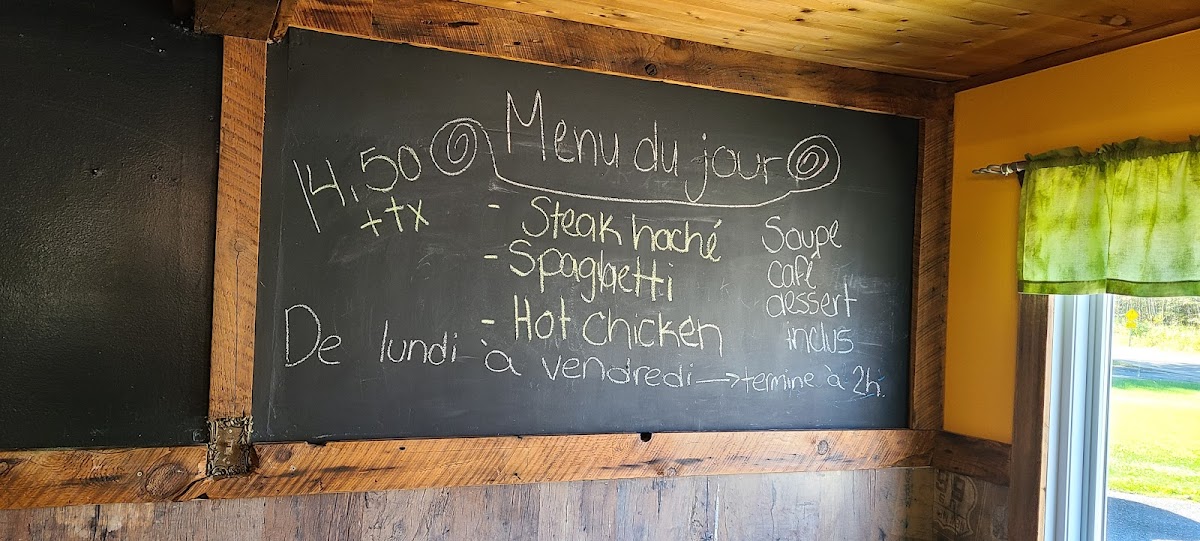 Menu du jour
14,50
+tx
- Steak haché
- Spaghetti
- Hot chicken
Soupe
café
dessert
inclus
De lundi à vendredi → termine à 2h.